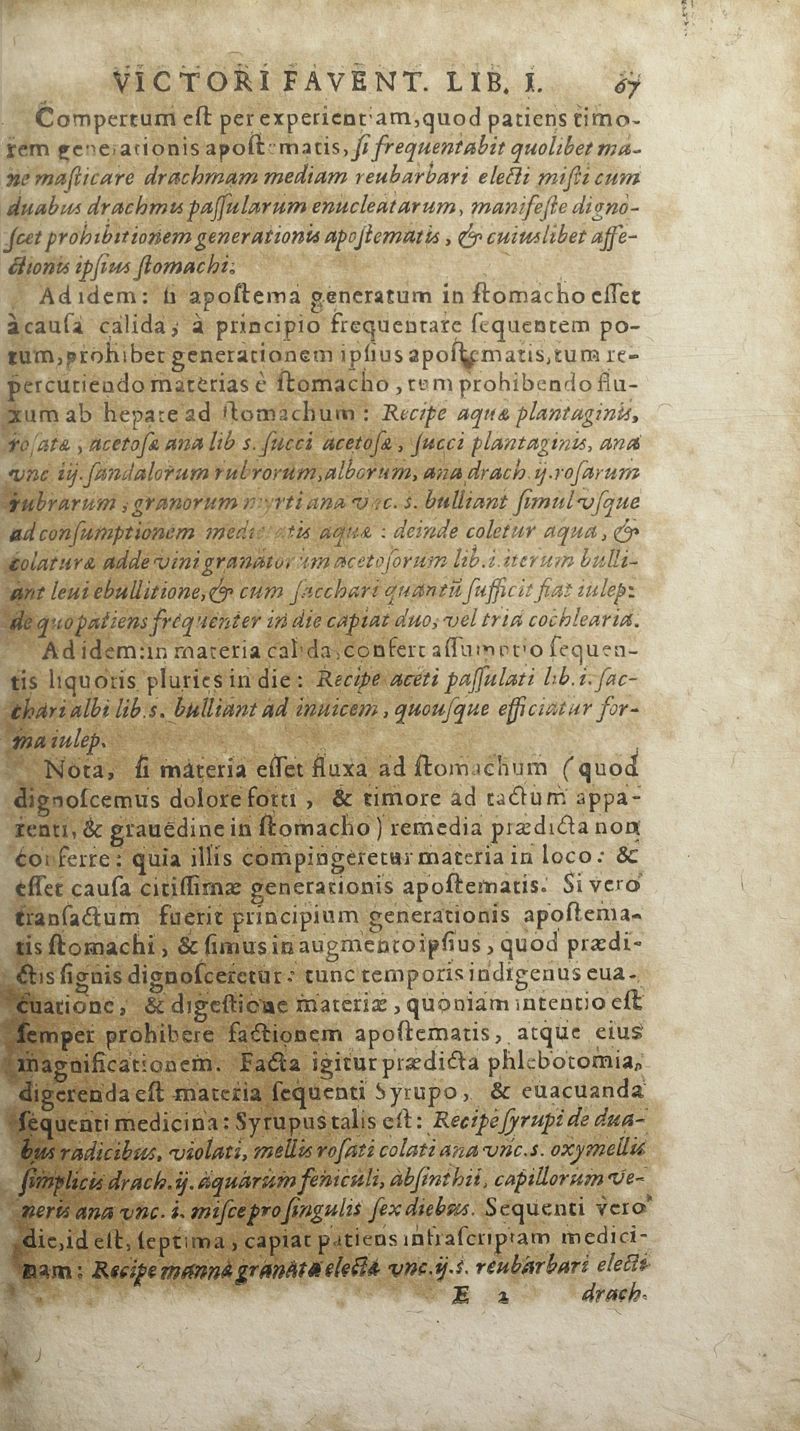 VICTORI FAVENT. LIB. I. 67
Compertum eſt per experient'am, quod patiens timo-
rem generationis apoſtematis, ſi frequentabit quolibet ma-
ne maſticare drachmam mediam reubarbari electi miſti cum
duabus drachmis paſſularum enucleatarum, manifeſte digno-
ſcet prohibitionem generationis apoſtematis, & cuiuslibet affe-
ctionis ipſius ſtomachi.
Ad idem: ſi apoſtema generatum in ſtomacho eſſet
à cauſa calida, à principio frequentare ſequentem po-
tum, prohibet generationem ipſius apoſtematis, tum re-
percutiendo materias è ſtomacho, tum prohibendo flu-
xum ab hepate ad ſtomachum: Recipe aquæ plantaginis,
roſatæ, acetoſæ ana lib s. ſucci acetoſæ, ſucci plantaginis, ana
vnc iij. ſandalorum rubrorum, alborum, ana drach. ij. roſarum
rubrarum, granorum myrti ana vnc. s. bulliant ſimul vſque
ad conſumptionem medietatis aquæ: deinde coletur aqua, &
colaturæ adde vini granatorum acetoſorum lib. i. iterum bulli-
ant leui ebullitione, & cum ſacchari quantũ ſufficit fiat iulep:
de quo patiens frequenter in die capiat duo, vel tria cochlearia.
Ad idem: in materia calida, confert aſſumptio ſequen-
tis liquoris pluries in die: Recipe aceti paſſulati lib. i. ſac-
chari albi lib. s. bulliant ad inuicem, quouſque efficiatur for-
ma iulep.
Nota, ſi materia eſſet fluxa ad ſtomachum (quod
dignoſcemus dolore forti, & timore ad tactum appa-
renti, & grauedine in ſtomacho) remedia prædicta non
conferre: quia illis compingeretur materia in loco: &
eſſet cauſa citiſſimæ generationis apoſtematis. Si vero
tranſactum fuerit principium generationis apoſtema-
tis ſtomachi, & ſimus in augmento ipſius, quod prædi-
ctis ſignis dignoſceretur: tunc temporis indigenus eua-
cuatione, & digeſtione materiæ, quoniam intentio eſt
ſemper prohibere factionem apoſtematis, atque eius
magnificationem. Facta igitur prædicta phlebotomia,
digerenda eſt materia ſequenti Syrupo, & euacuanda
ſequenti medicina: Syrupus talis eſt: Recipe ſyrupi de dua-
bus radicibus, violati, mellis roſati colati ana vnc. s. oxymellis
ſimplicis drach. ij. aquarum feniculi, abſinthii, capillorum Ve-
neris ana vnc. i. miſce pro ſingulis ſex diebus. Sequenti vero
die, id eſt, ſeptima, capiat patiens infraſcriptam medici-
nam: Recipe mannæ granatæ electæ vnc. ij. s. reubarbari electi
E 2 drach.